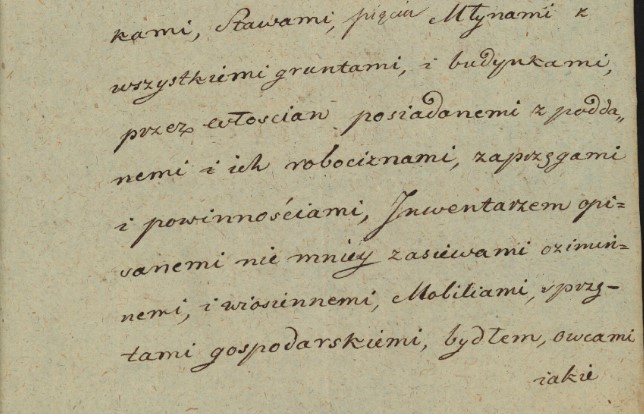 kami, Stawami, pięcia Młynami z
wszystkiemi gruntami, i budynkami,
przez włoscian posiadanemi z podda„
nemi i ich robociznami, zaprzęgami
i powinnościami, Inwentarzem opi=
sanemi nie mniey zasiewami ozimin=
nemi, i wiosiennemi, Mobiliami, sprzę-
tami gospodarskiemi, bydłem, owcami
iakie